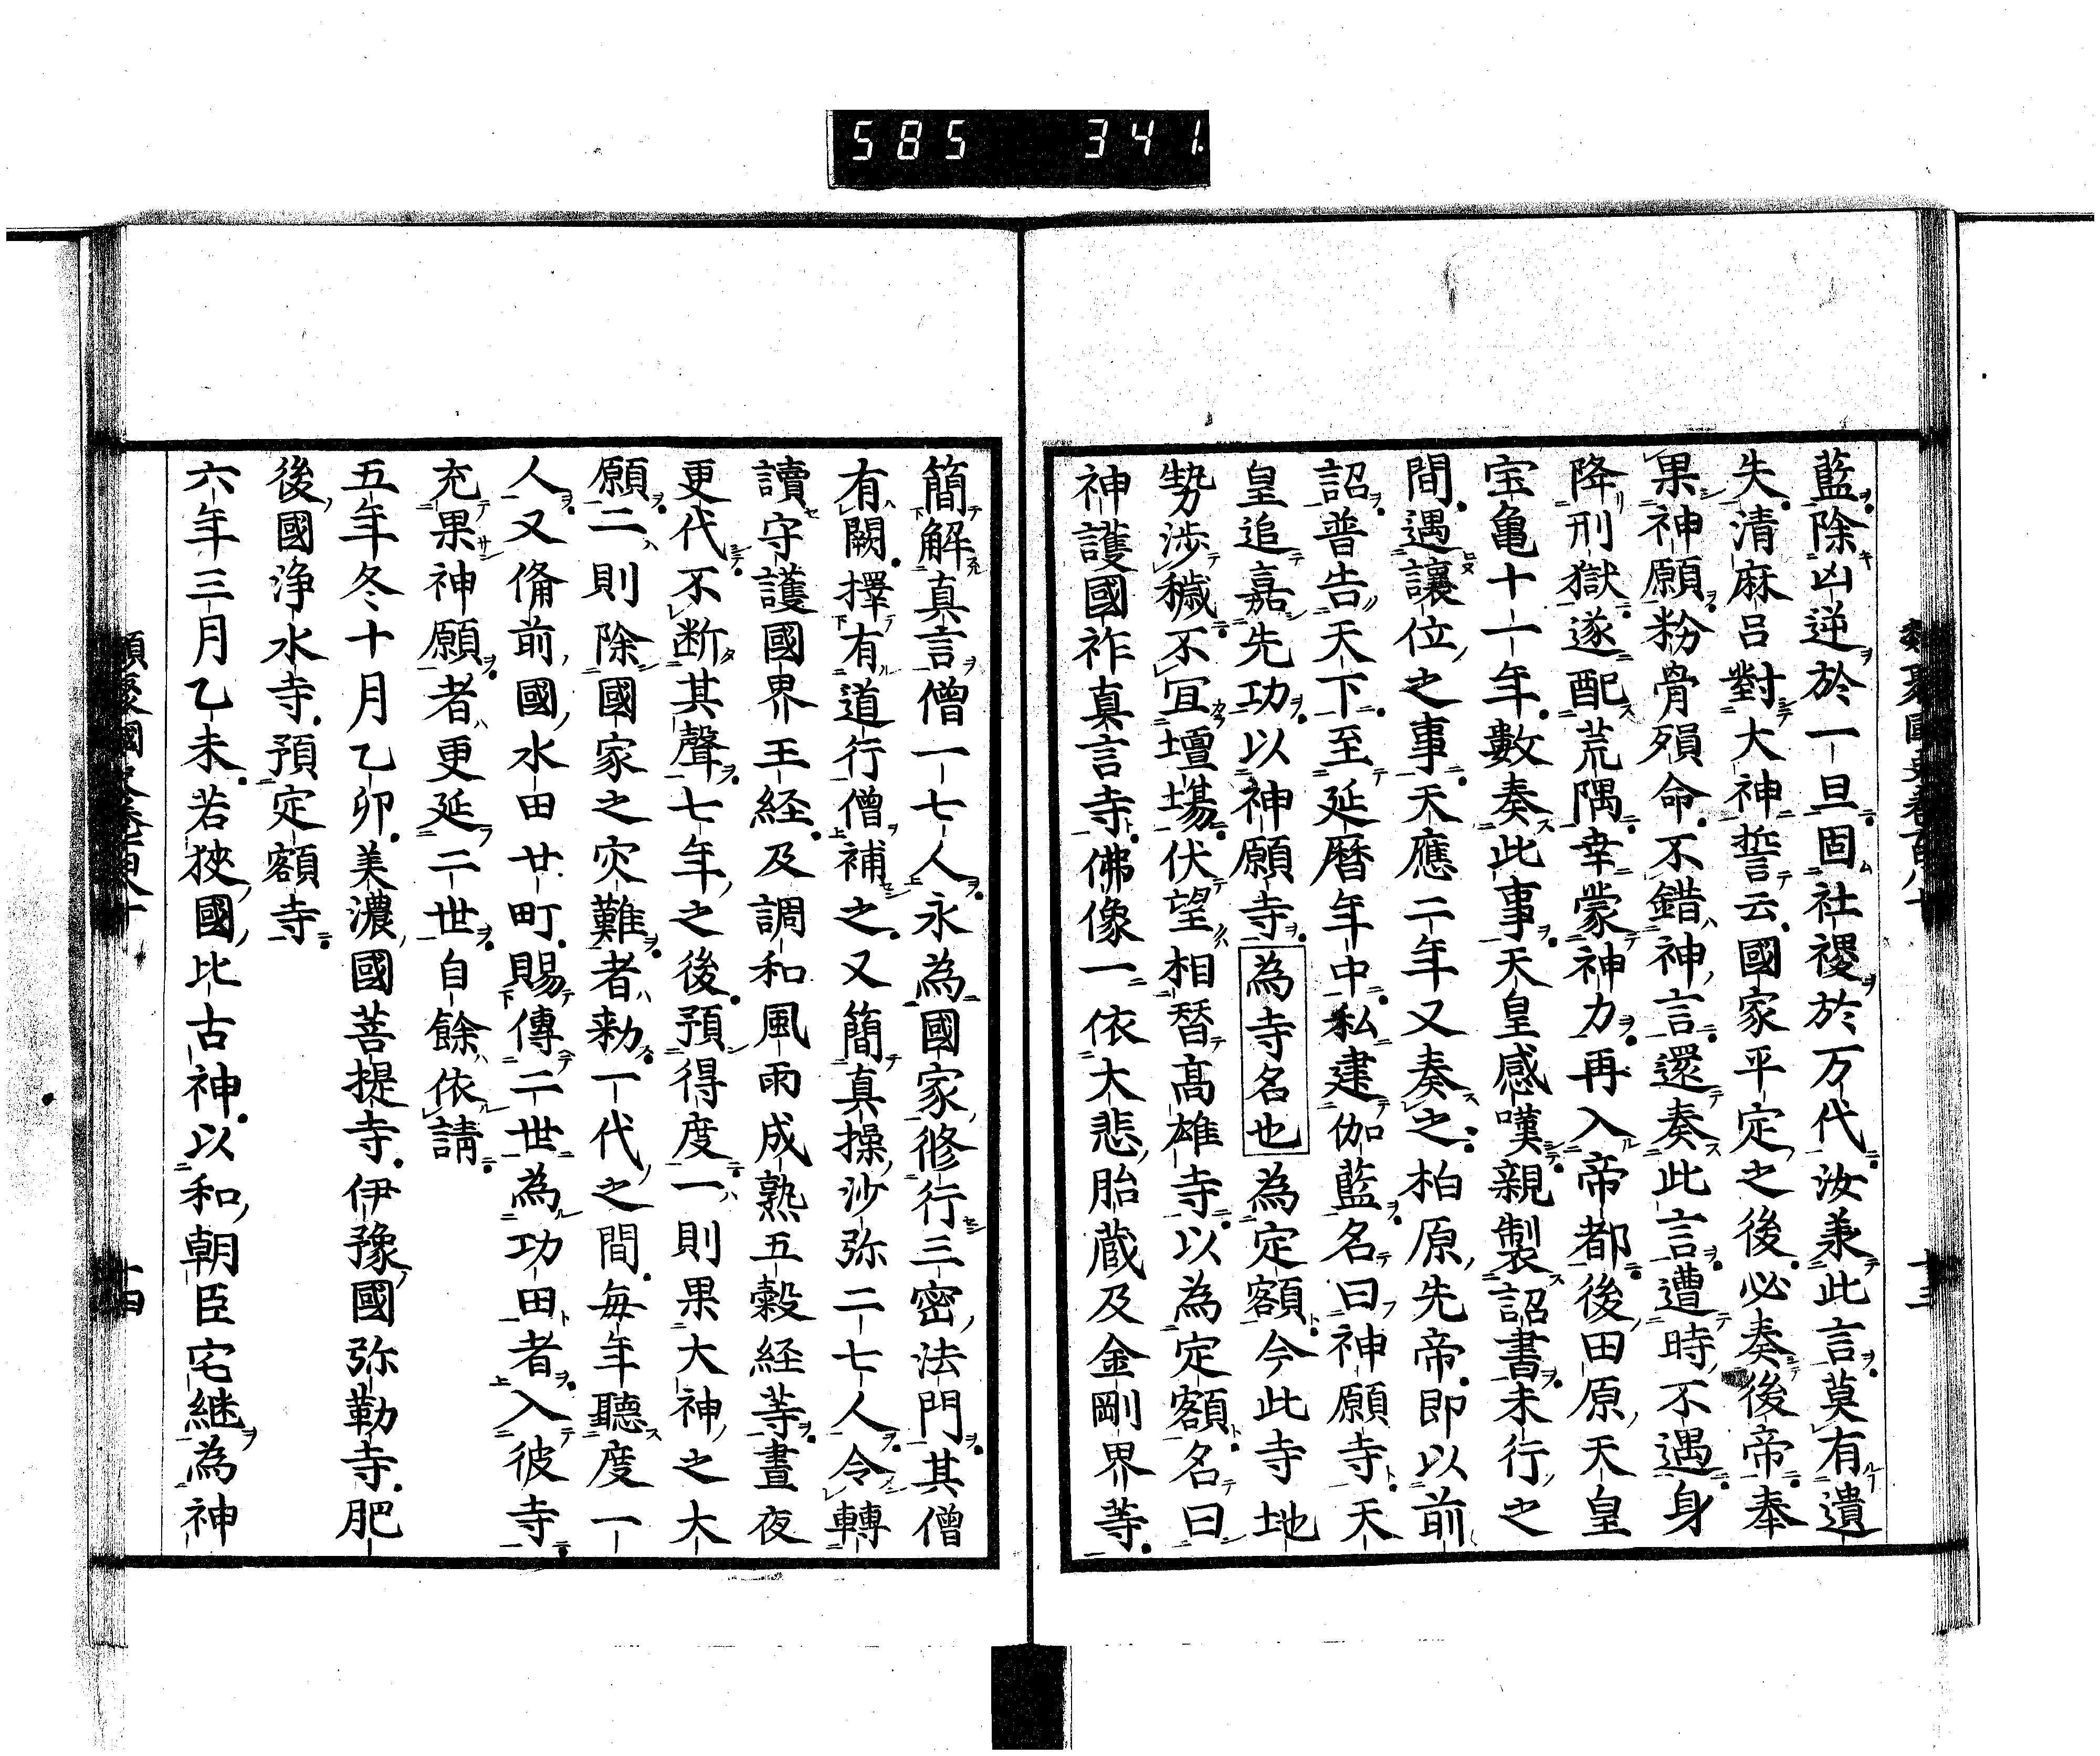 585 341
藍除凶逆於一旦固社禝於万代汝兼此言莫有遺
失清麻呂對大神誓云國家平定之後必奏後帝奉
果神願粉骨殞命不錯神言還奏此言遭時不遇身
降刑獄遂配荒隅幸蒙神力再入帝都後田原天皇
宝亀十一年數奏此事天皇感嘆親製詔書未行之
間遇讓位之事天應二年又奏之柏原先帝即以前
詔普告天下至延暦年中私建伽藍名曰神願寺天
皇追嘉先功以神願寺為寺名也為定額今此寺地
勢渉穢不宜壇場伏望相替高雄寺以為定額名曰
神護國祚真言寺佛像一依大悲胎蔵及金剛界等
簡解真言僧一七人永為國家修行三密法門其僧
有闕擇有道行僧補之又簡真操沙弥二七人令轉
讀守護國界王経及調和風雨成熟五穀経等晝夜
更代不断其聲七年之後預得度一則果大神之大
願二則除國家之灾難者勅一代之間毎年聽度一
人又俻前國水田廿町賜傳二世為功田者入彼寺
充果神願者更延二世自餘依請
五年冬十月乙卯美濃國菩提寺伊豫國弥勒寺肥
後國浄水寺預定額寺
六年三月乙未若狹國比古神以和朝臣宅継為神